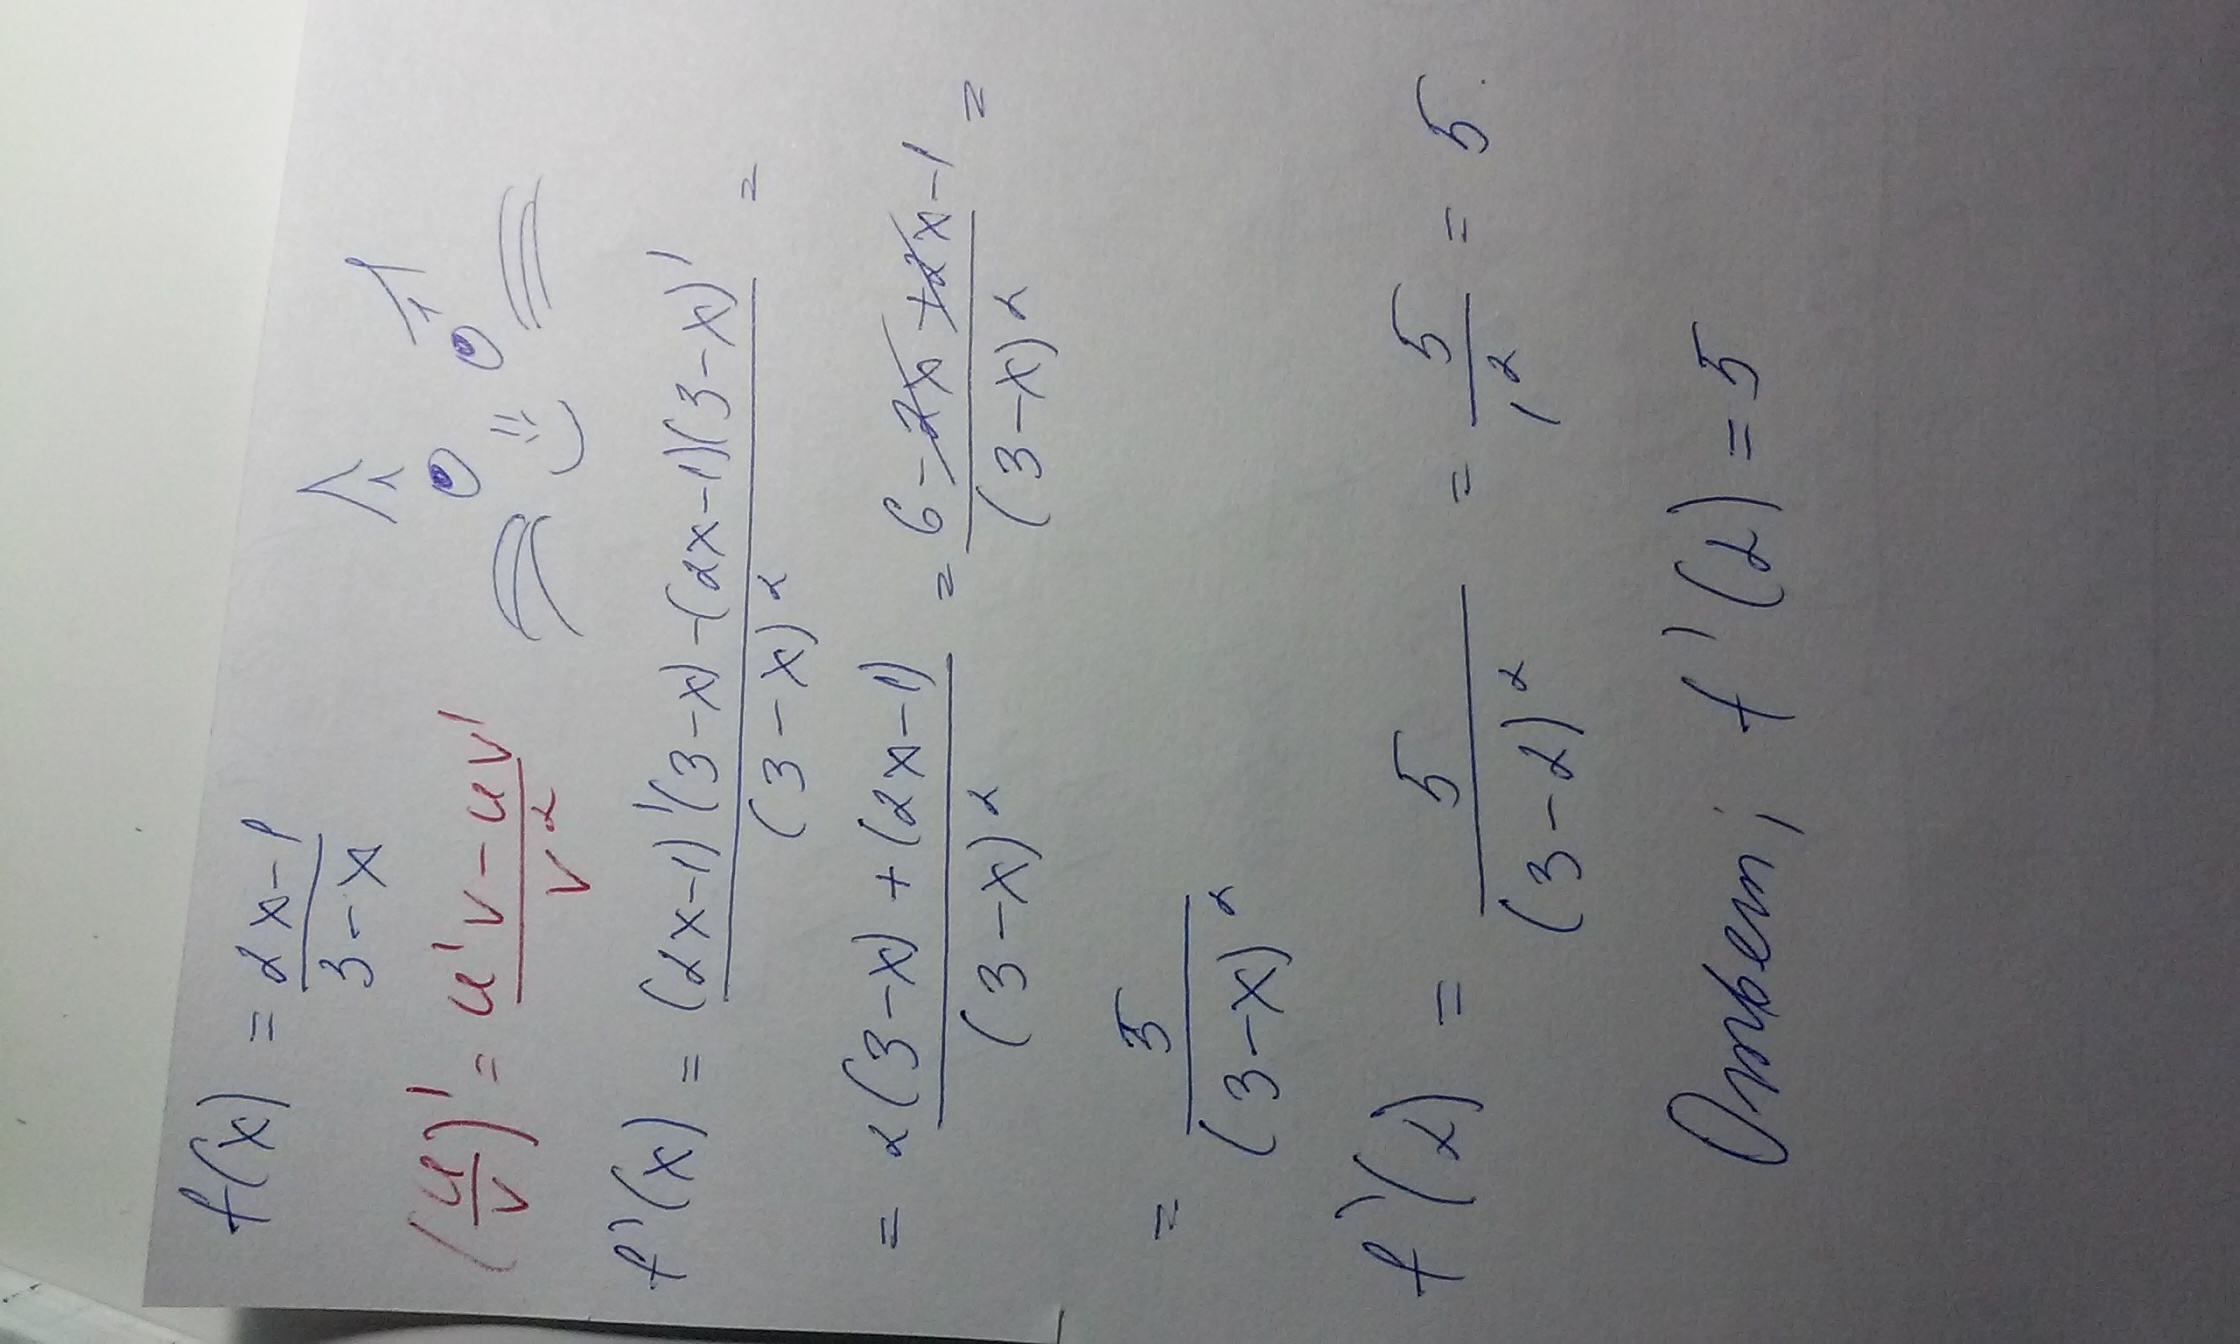 f(x) = (2x-1)/(3-x)
(u/v)' = (u'v - uv')/v²
f'(x) = ((2x-1)'(3-x)-(2x-1)(3-x)')/(3-x)² =
= (2(3-x)+(2x-1))/(3-x)² = (6-2x+2x-1)/(3-x)² =
= 5/(3-x)²
f'(2) = 5/(3-2)² = 5/1² = 5.
Ответ; f'(2) = 5